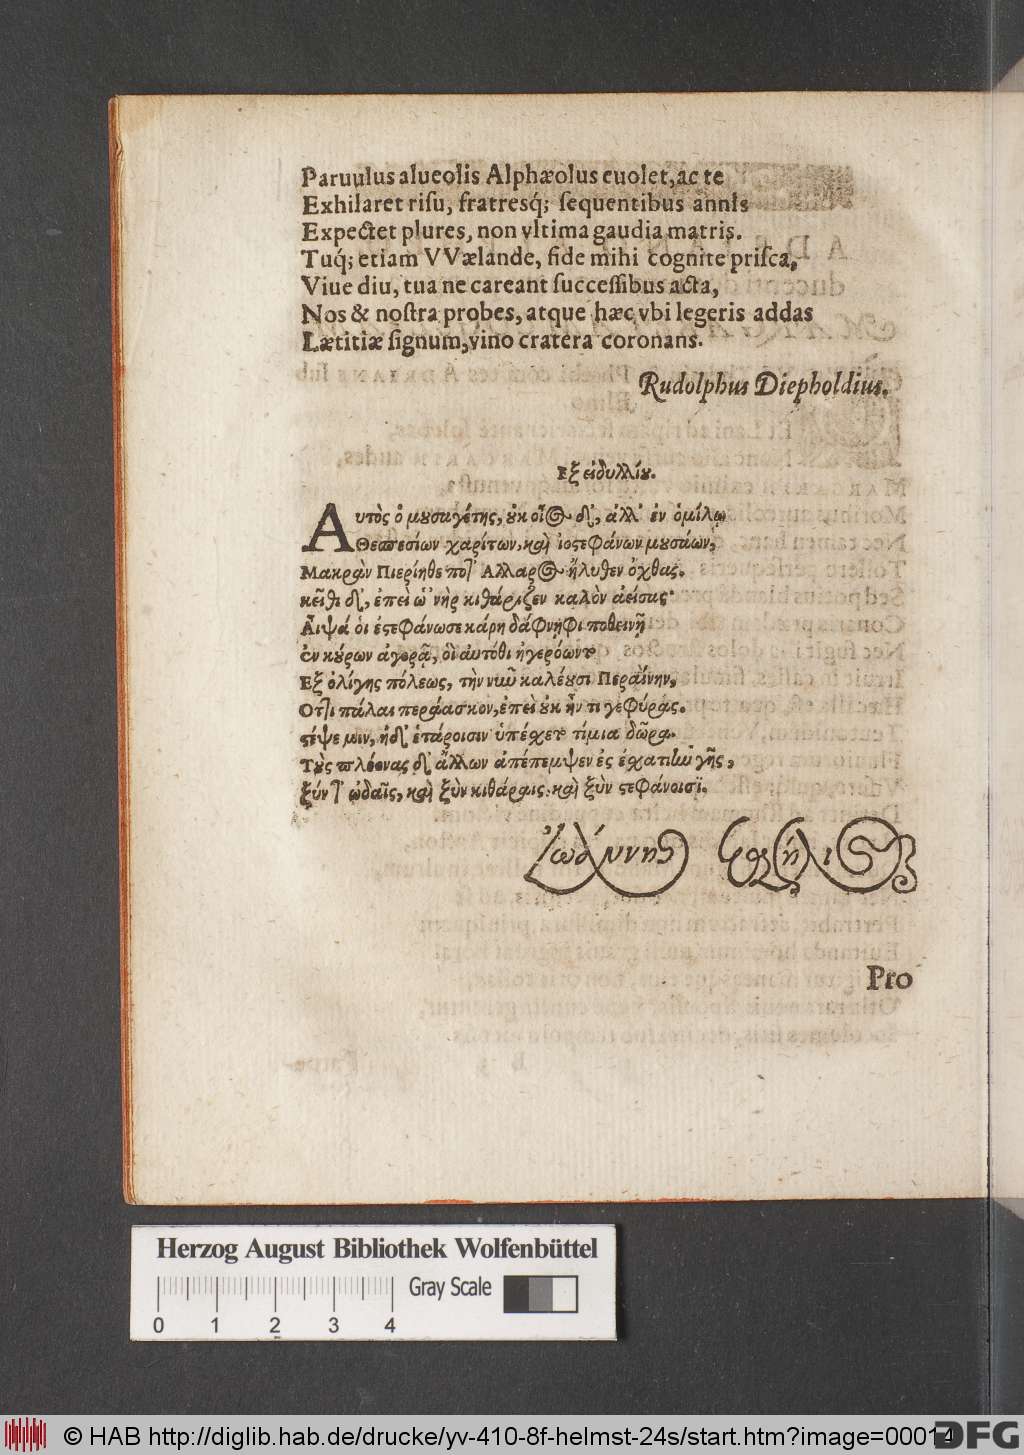 Paruulus alueolis Alphæolus euolet, ac te
Exhilaret risu, fratresq́; sequentibus annis
Expectet plures, non vltima gaudia matris.
Tuq́; etiam VVælande, fide mihi cognite prisca,
Viue diu, tua ne careant successibus acta,
Nos & nostra probes, atque hæc vbi legeris addas
Lætitiæ signum, vino cratera coronans.
Rudolphus Diepholdius.
Ἐξ εἰδυλλίου.
Αυτὸς ὁ μουσαγέτης, ουκ οἶος δ', ἀλλ' ἐν ὁμίλῳ
Θεσπεσίων χαρίτων, καὶ ἰοστεφάνων μουσάων,
Μακρὰν Πιερίηθε ποτ' Αλλαρος ἤλυθεν ὄχθας.
κεῖθι δ', ἐπεὶ ὡ'νὴρ κιθάριζεν καλὸν ἀείσας·
Αἶψά ὁι ἐστεφάνωσε κάρη δάφνηφι ποθεινῇ
ἐν κύρων ἀγορᾷ, οἳ αυτόθι ἠγερόωντο
Εξ ὀλίγης πόλεως, τὴν νῦν καλέουσι Περαίνην,
Οτ]ι πάλαι περάασκον, ἐπεὶ ουκ ἦν τι γεφύρας.
στέψε μιν, ἠδ' ἑτάροισιν ὑπέσχετο τίμια δῶρα.
Τοὺς πλέονας δ' ἄλλων ἀπέπεμψεν ἐς ἐσχατιὴν γῆς,
ξύν τ' ᾠδαῖς, καὶ ξὺν κιθάραις, καὶ ξὺν στεφάνοισϊ.
Ἰωάννης
Pro
Herzog August Bibliothek Wolfenbüttel
Gray Scale
0 1 2 3 4
© HAB http://diglib.hab.de/drucke/yv-410-8f-helmst-24s/start.htm?image=00014
DFG